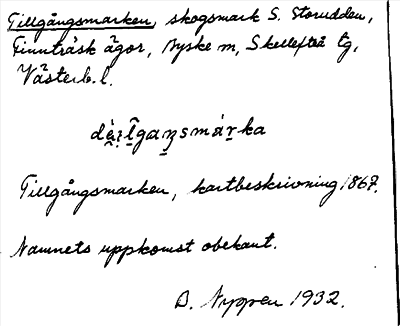 Tillgångsmarken, skogsmark S. Storudden,
Finnträsk ägor, Byske m, Skellefteå tg,
Västerb. l.
Tillgångsmarken, kartbeskrivning 1867.
Namnets uppkomst obekant.
B. Nygren 1932.